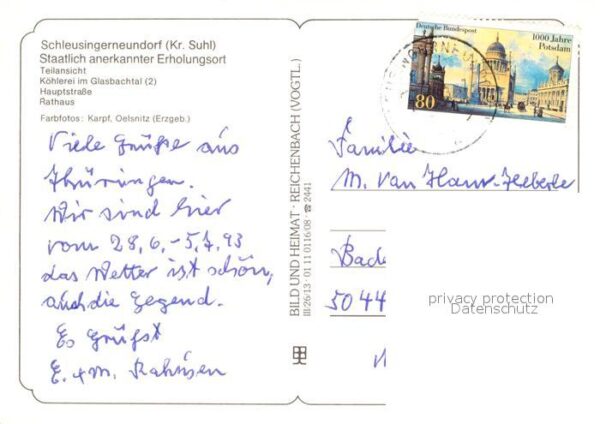 Schleusingerneundorf (Kr. Suhl)
Staatlich anerkannter Erholungsort
Teilansicht
Köhlerei im Glasbachtal (2)
Hauptstraße
Rathaus
Farbfotos: Karpf, Oelsnitz (Erzgeb.)
Viele Grüße aus
Thüringen.
Wir sind hier
vom 28.6.-5.7.93
das Wetter ist schön,
auch die Gegend.
Es grüßt
E. + M.
BILD UND HEIMAT · REICHENBACH (VOGTL.)
III/26/13 · 01 11 0116/08 · ☎ 2441
Deutsche Bundespost
1000 Jahre
Potsdam
80
Familie
M. van
Bade
5044
privacy protection
Datenschutz